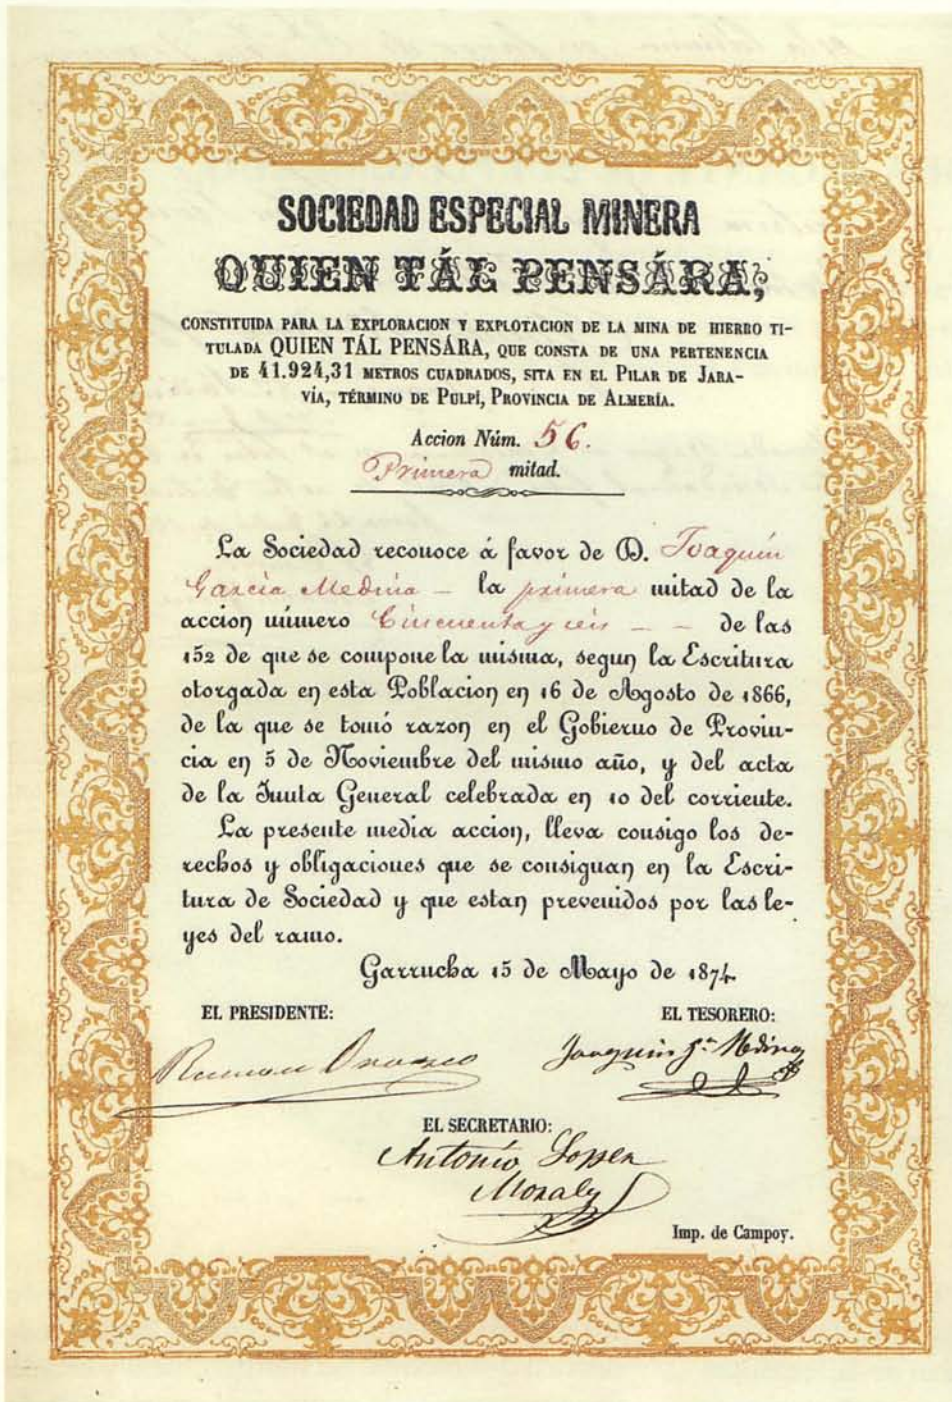 SOCIEDAD ESPECIAL MINERA
QUIEN TÁL PENSÁRA,
CONSTITUIDA PARA LA EXPLORACION Y EXPLOTACION DE LA MINA DE HIERRO TI-
TULADA QUIEN TÁL PENSÁRA, QUE CONSTA DE UNA PERTENENCIA
DE 41.924,31 METROS CUADRADOS, SITA EN EL PILAR DE JARA-
VÍA, TÉRMINO DE PULPÍ, PROVINCIA DE ALMERÍA.
Accion Núm. 56.
Primera mitad.
La Sociedad reconoce á favor de D. Joaquin
Garcia Medina – la primera mitad de la
accion número Cincuenta y seis – – de las
152 de que se compone la misma, segun la Escritura
otorgada en esta Poblacion en 16 de Agosto de 1866,
de la que se tomó razon en el Gobierno de Provin-
cia en 5 de Noviembre del mismo año, y del acta
de la Junta General celebrada en 10 del corriente.
La presente media accion, lleva consigo los de-
rechos y obligaciones que se consignan en la Escri-
tura de Sociedad y que estan prevenidos por las le-
yes del ramo.
Garrucha 15 de Mayo de 1874
EL PRESIDENTE: EL TESORERO:
Ramon Orozco Joaquin Ga. Medina
EL SECRETARIO:
Antonio Lopez
Morales
Imp. de Campoy.